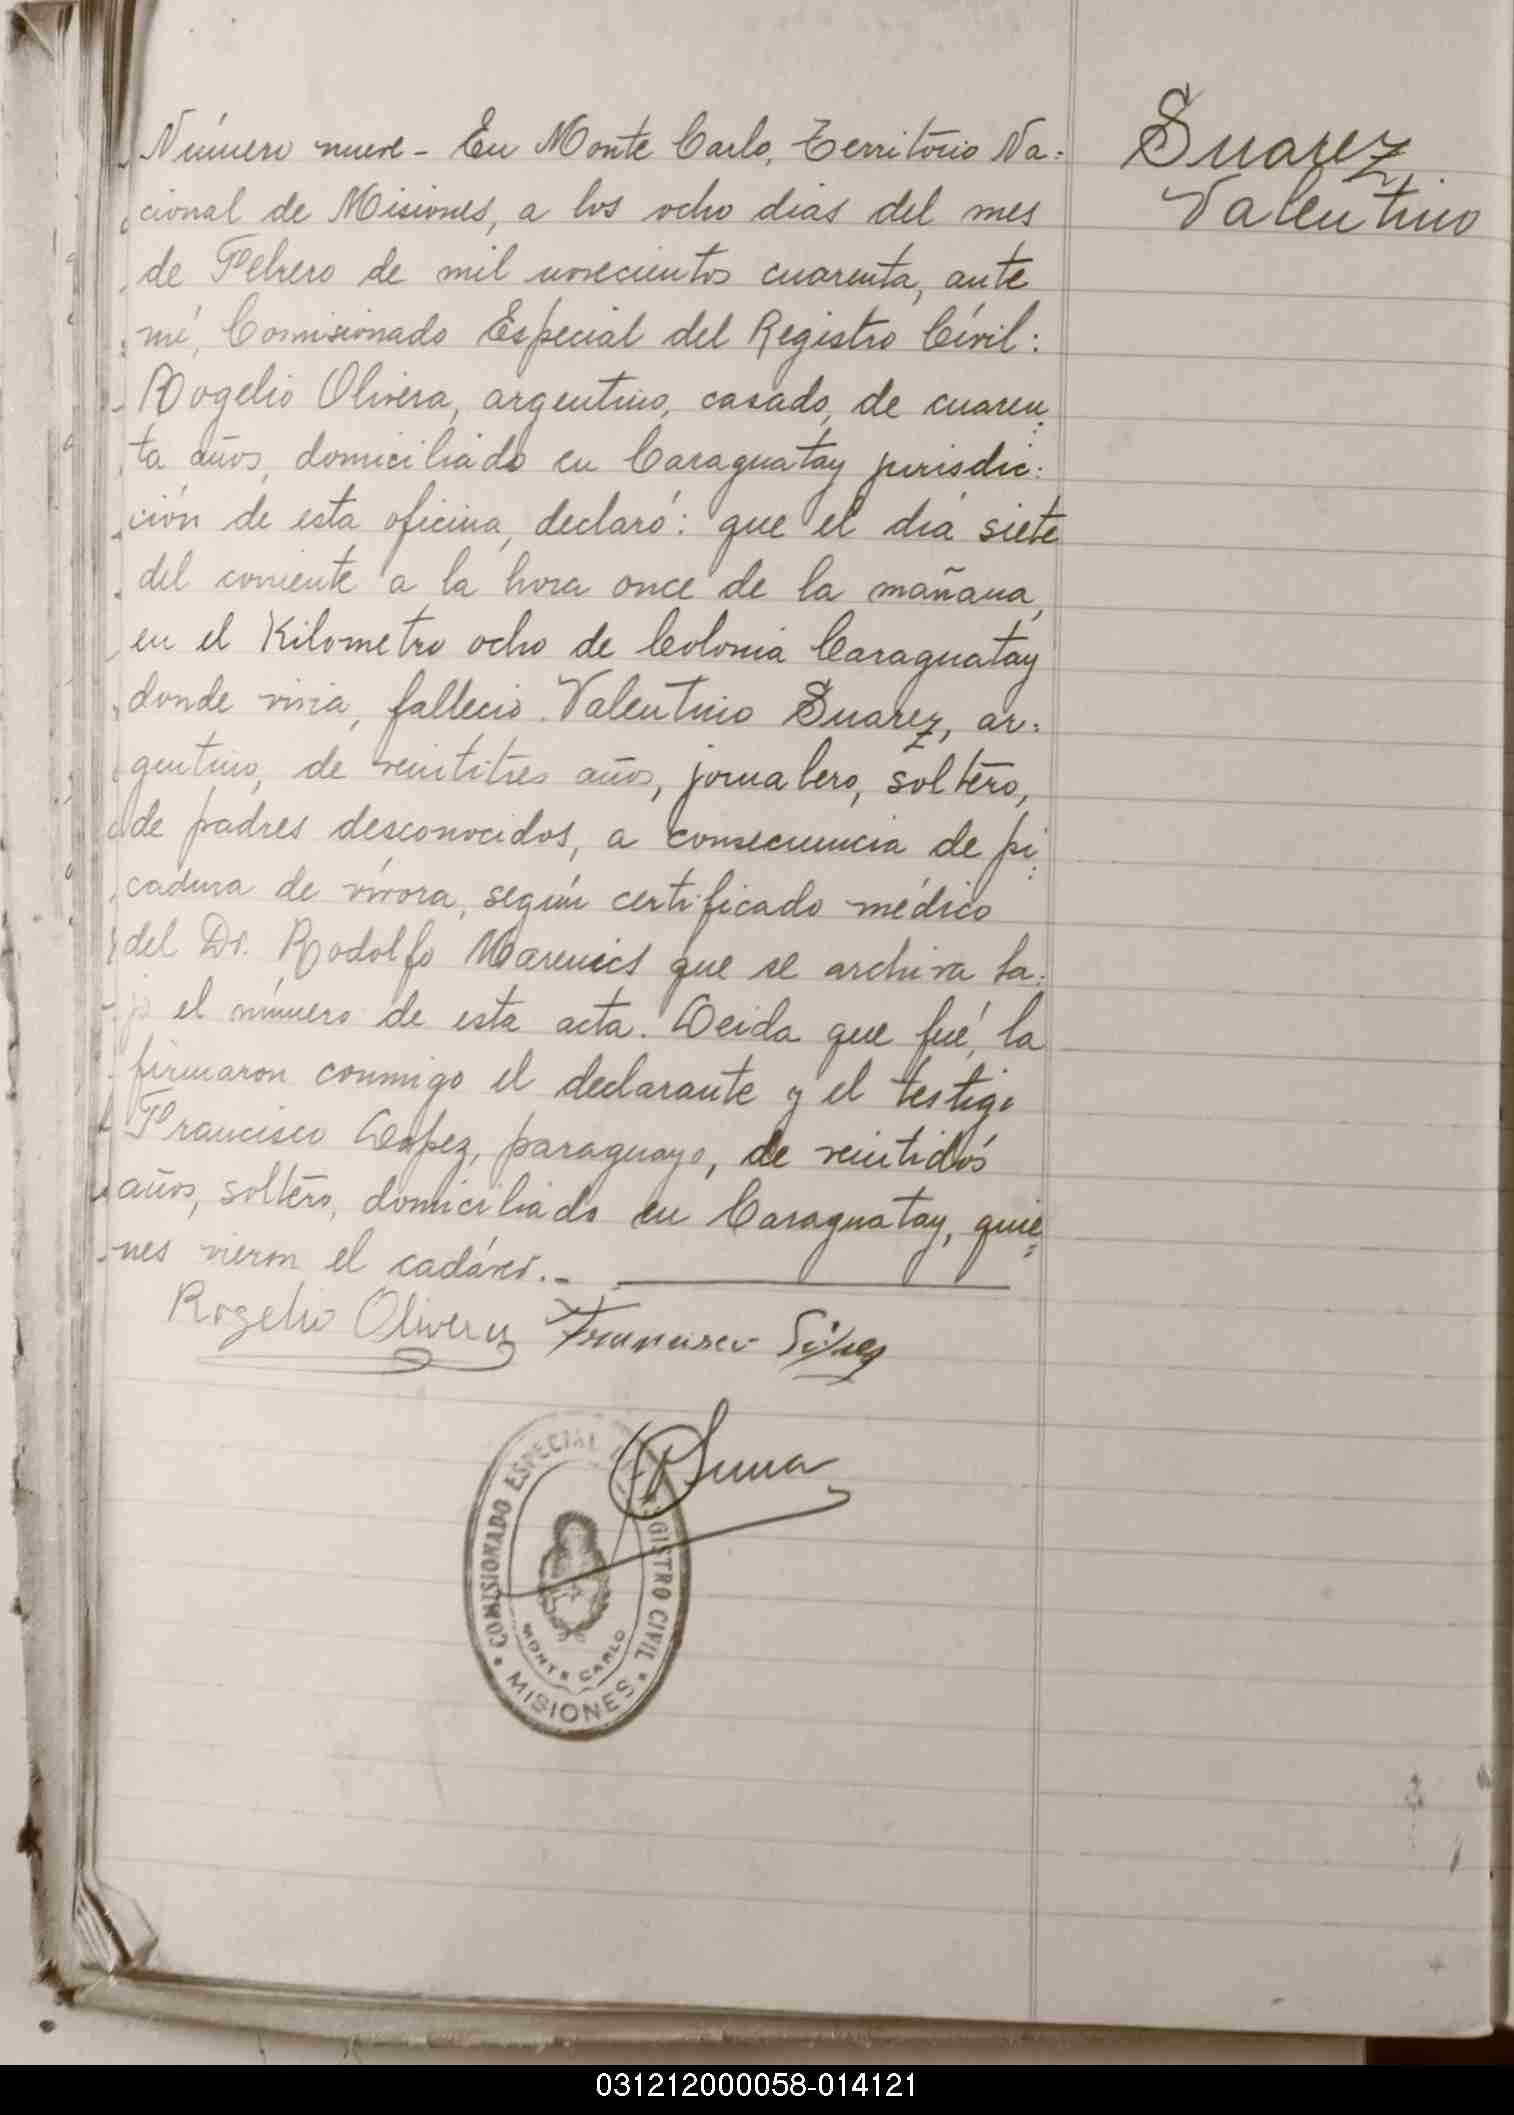 Suarez
Valentino
Número nueve - En Monte Carlo, Territorio Na=
cional de Misiones, a los ocho dias del mes
de Febrero de mil novecientos cuarenta, ante
mí, Comisionado Especial del Registro Cívil:
Rogelio Olivera, argentino, casado, de cuaren=
ta años, domiciliado en Caraguatay jurisdic=
ción de esta oficina, declaró: que el día siete
del corriente a la hora once de la mañana,
en el Kilometro ocho de Colonia Caraguatay
donde vivia, fallecio Valentino Suarez, ar=
gentino, de veintitres años, jornalero, soltero,
de padres desconocidos, a consecuencia de pi=
cadura de vívora, según certificado médico
del Dr. Rodolfo que se archiva ba=
jo el número de esta acta. Leida que fué, la
firmaron conmigo el declarante y el testigo
Francisco Lopez, paraguayo, de veintidós
años, soltero, domiciliado en Caraguatay, quie=
nes vieron el cadáver.-
Rogelio Olivera Francisco
COMISIONADO ESPECIAL DEL REGISTRO CIVIL
MONTE CARLO
MISIONES
031212000058-014121